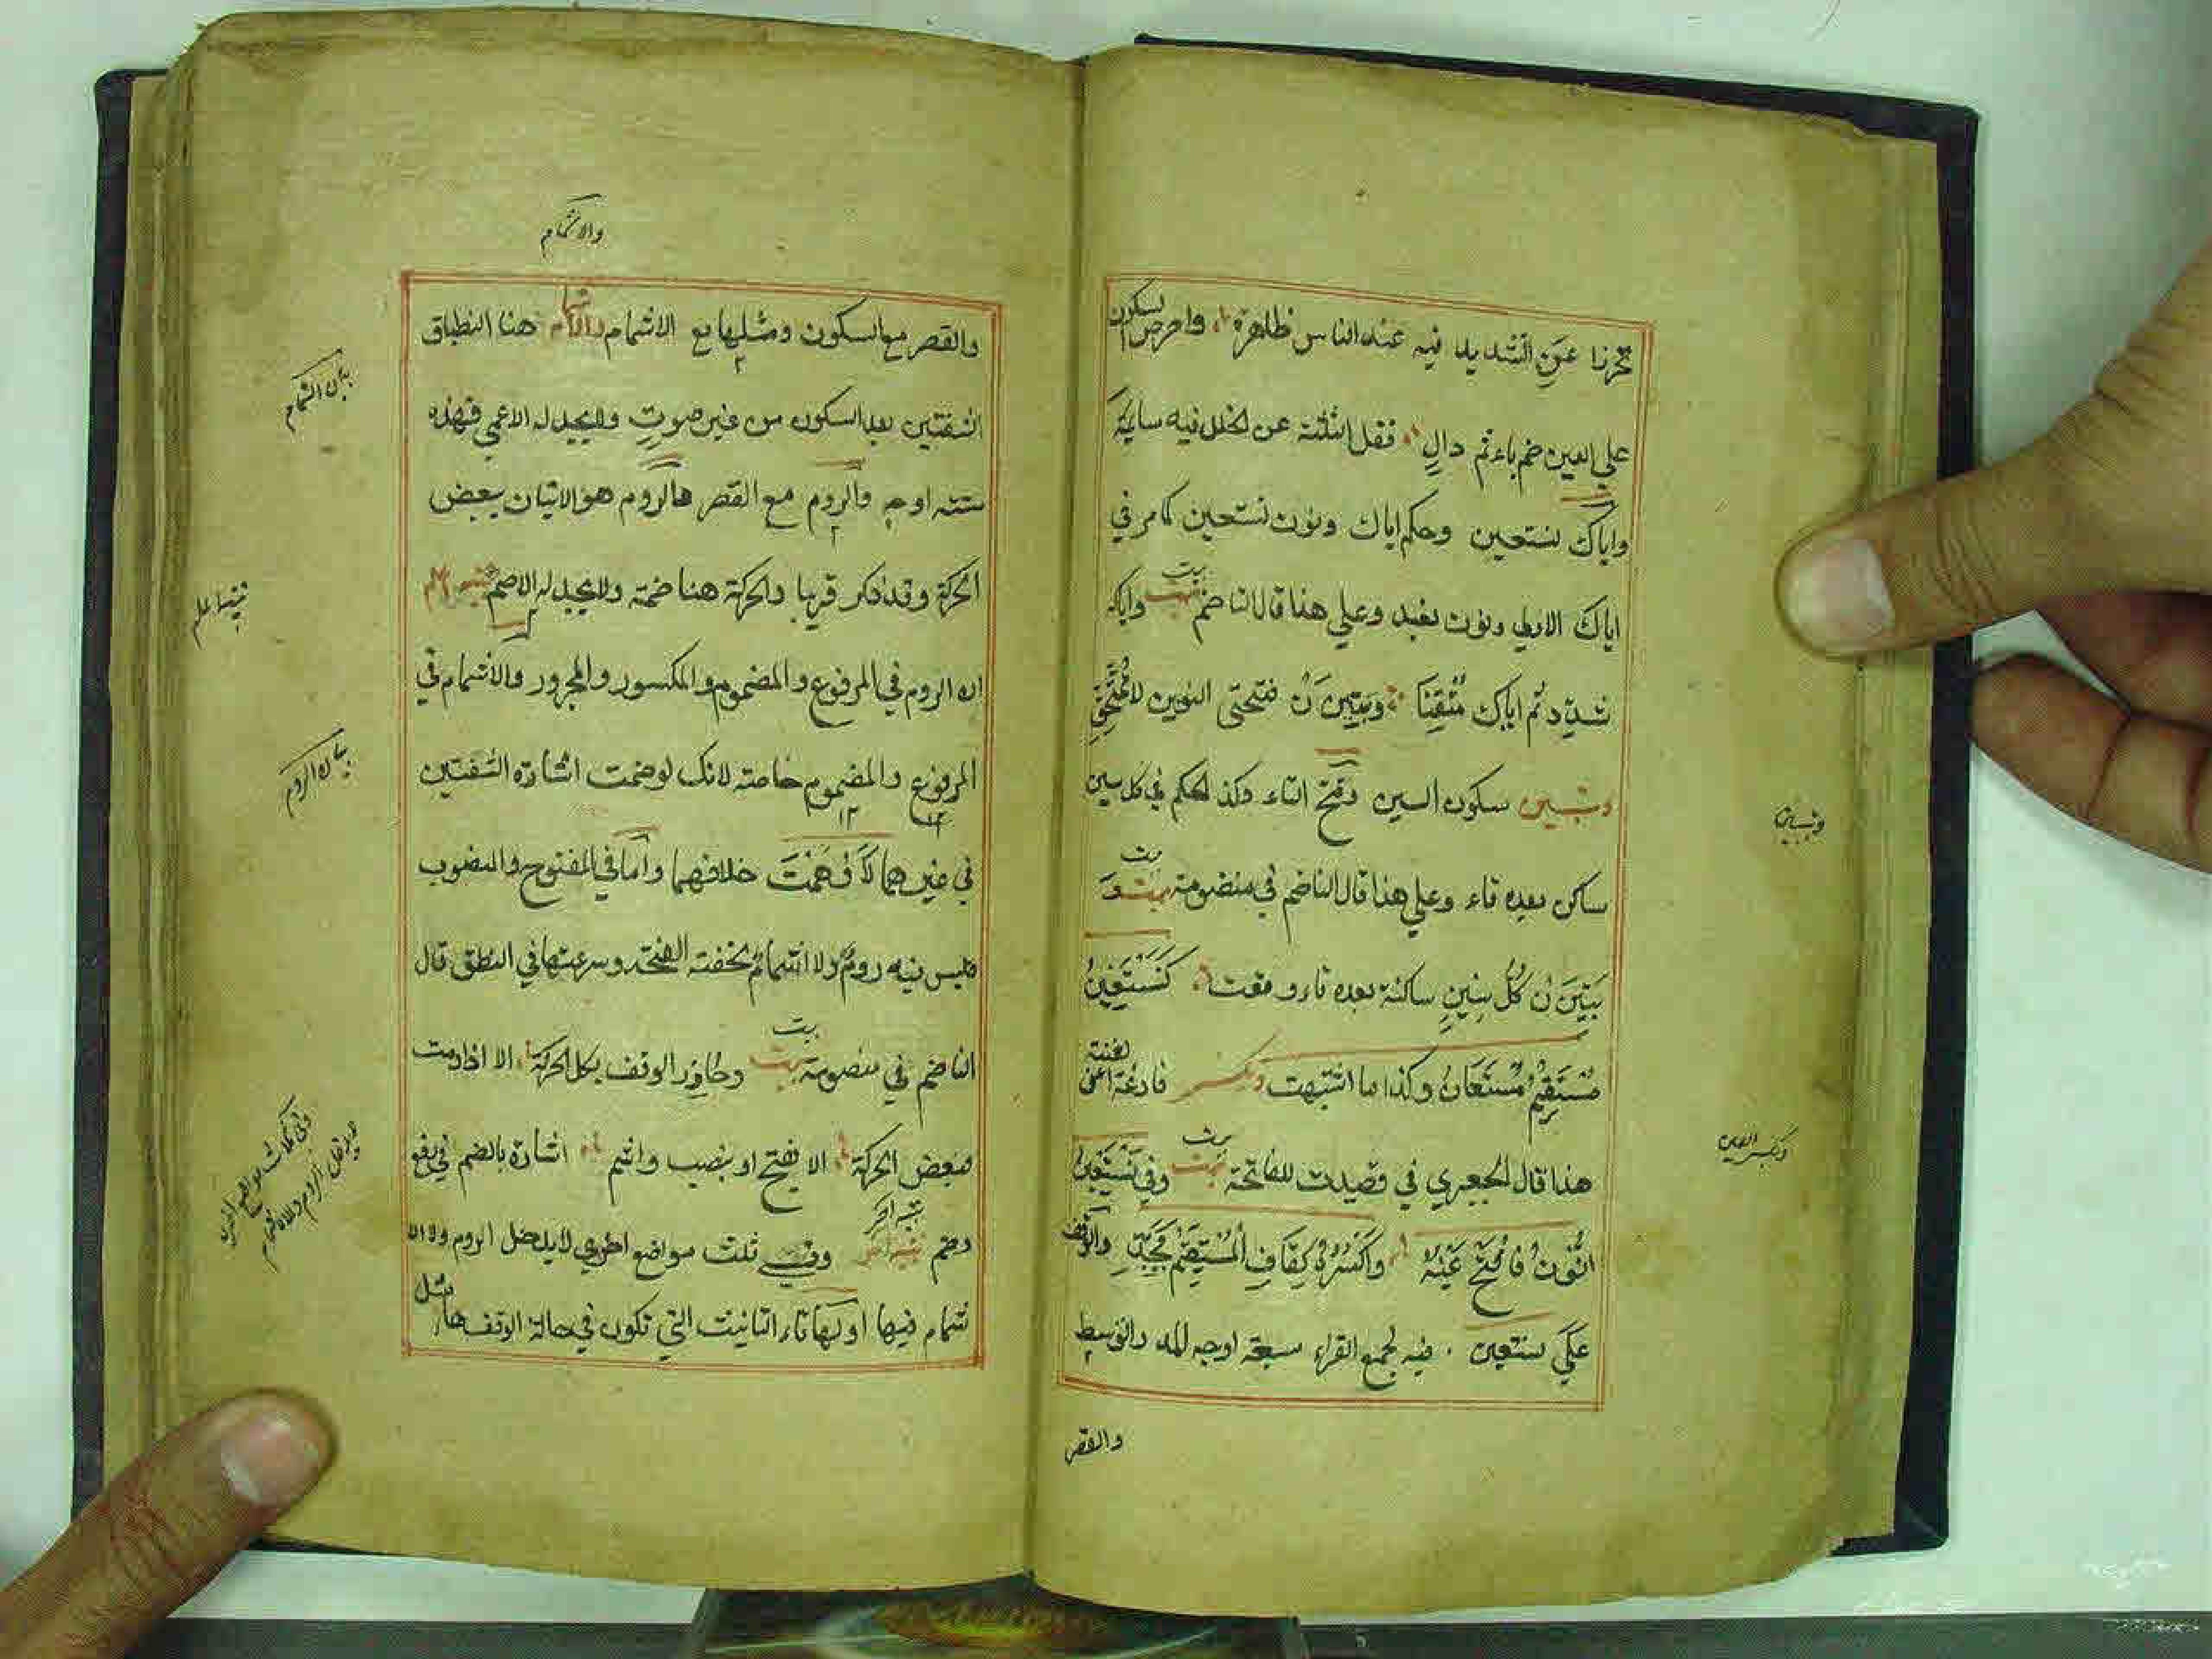 تحرزا عن التشديد فيه عند الناس ظاهرة واحرص لسكون
علي العين ضم باء ثم دال فقل اثلثة عن الخلل فيه سالمة
واياك نستعين وحكم اياك ونون نستعين كما مر في
اياك الاولي ونون نعبد وعلي هذا قال الناضم بيت واياك
شدد ثم اياك متقنا وبينن فتحتي النونين
وتبين سكون السين وفتح التاء وكذا الحكم في كل سين
ساكن بعده تاء وعلي هذا قال الناضم في منضومة بيت
بينن كل سين ساكنة بعده تاء وقعت كنستعين
مستقيم مستعان وكذا ما اشتبهت وتكسر
هذا قال الجعبري في قصيدت للفاتحة بيت وفي نستعين
النون فافتح عينه واكسره كقاف المستقيم والوقف
علي نستعين فيه لجميع القراء سبعة اوجه المد والتوسط
والقصر
وتبيين
وتكسر العين
والاشمام
والقصر مع السكون ومثلها مع الاشمام والاشمام هنا انطباق
الشفتين بعد السكون من غير صوت ولا يجد له الاعمي فهذه
ستة اوجه والروم مع القصر فالروم هو الاتيان ببعض
الحركة وقد ذكر قريبا والحركة هنا ضمة ولا يجد له الاصم
ان الروم في المرفوع والمضموم والمكسور والمجرور والاشمام في
المرفوع والمضموم خاصة لانك لو ضممت اشارة الشفتين
في غيرهما خلافهما واما في المفتوح والمنصوب
فليس فيه روم ولا اشمام لخفة الفتحة وسرعتها في النطق قال
الناضم في منضومة بيت وحاذر الوقف بكل الحركة الا اذا رمت
فبعض الحركة الا بفتح او بنصب واشم اشارة بالضم في رفع
وضم تنبيه اخر وفي ثلث مواضع اخري لا يدخل الروم ولا الا
شمام فيها اولها تاء التانيث التي تكون في حالة الوقف ها مثل
بيان اشمام
تنبيه اعلم
بيان الروم